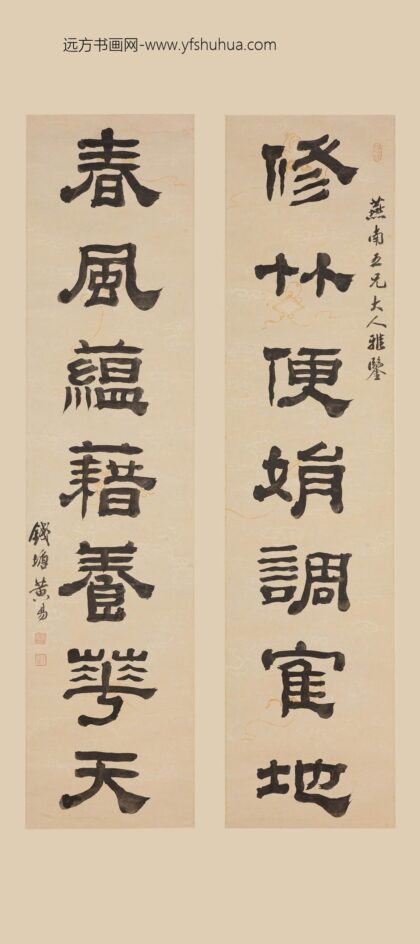 远方书画网-www.yfshuhua.com
燕南五兄大人雅鑒
修竹便娟調寉地
春風蘊藉養華天
錢塘黃易